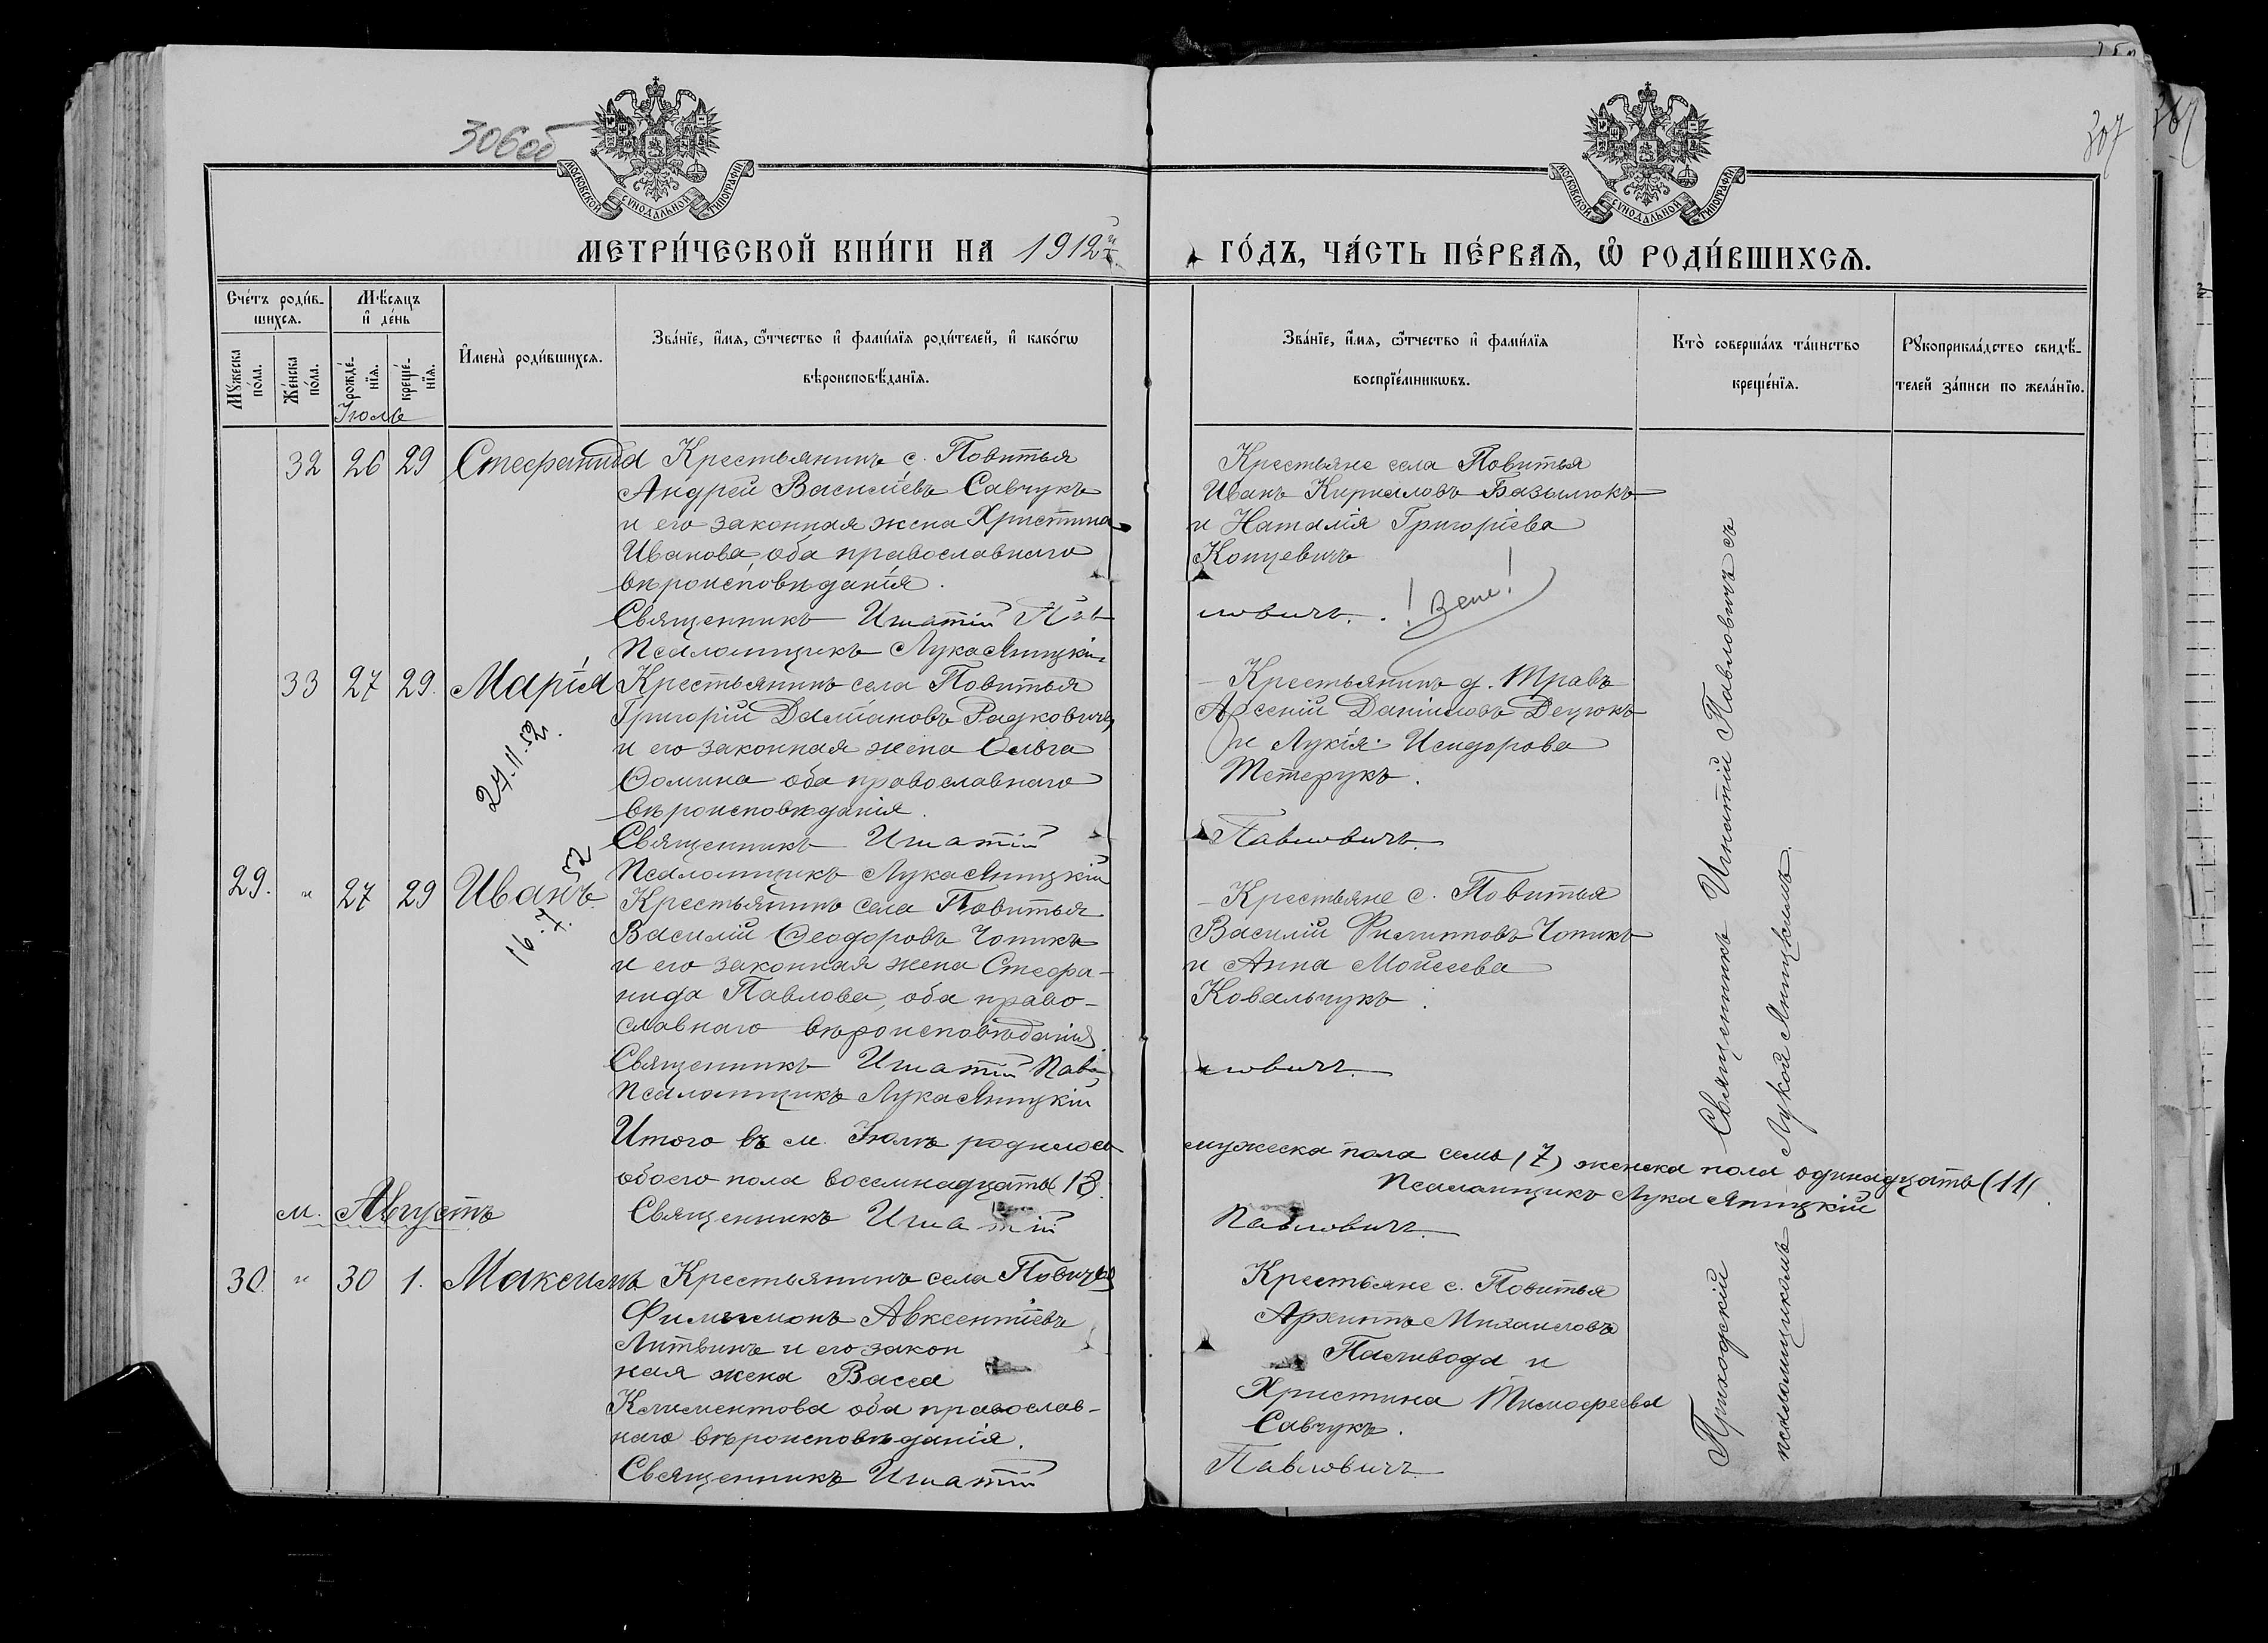 306об
307
МОСКОВСКОЙ СѴНОДАЛЬНОЙ ТИПОГРАФІИ
МОСКОВСКОЙ СѴНОДАЛЬНОЙ ТИПОГРАФІИ
МЕТРИ́ЧЕСКОЙ КНИ́ГИ НА 1912й
ГО́ДЪ, ЧА́СТЬ ПЕ́РВАѦ, Ѽ РОДИ́ВШИХСѦ.
Сче́тъ роди́в-
шихсѧ.
Мꙋ́жеска по́ла.
Же́нска по́ла.
Мѣ́сѧцъ
и҆ де́нь
рожде́нїѧ.
креще́нїѧ.
И҆мена̀ роди́вшихсѧ.
Зва́нїе, и҆́мѧ, ѻ҆́тчество и҆ фами́лїѧ роди́телей, и҆ како́гѡ
вѣроисповѣ́данїѧ.
Зва́нїе, и҆́мѧ, ѻ҆́тчество и҆ фами́лїѧ
воспрїе́мникѡвъ.
Кто̀ соверша́лъ та́инство
креще́нїѧ.
Рꙋкоприкла́дство свидѣ́-
телей за́писи по жела́нїю.
Іюль
32 26 29 Стефанида Крестьянинъ с. Повитья
Андрей Василіевъ Савчукъ
и его законная жена Христина
Иванова, оба православнаго
вѣроисповѣданія.
Священникъ Игнатій Пав
Псаломщикъ Лука Яницкій
Крестьяне села Повитья
Иванъ Кириловъ Базылюкъ
и Наталія Григоріева
Концевичъ
ловичъ.
33 27 29. Марія Крестьянинъ села Повитья
Григорій Даміановъ Радковичъ
и его законная жена Ольга
Ѳомина оба православнаго
вѣроисповѣданія.
Священникъ Игнатій
Псаломщикъ Лука Яницкій
24.11.52.
Крестьянинъ д. Травъ
Арсеній Даніиловъ Децюкъ
и Лукія Исидорова
Тетерукъ.
Павловичъ.
29. " 27 29 Иванъ Крестьянинъ села Повитья
Василій Ѳеодоровъ Чопикъ
и его законная жена Стефа-
нида Павлова, оба право-
славнаго вѣроисповѣданія.
Священникъ Игнатій Пав
Псаломщикъ Лука Яницкій
16.7.52
Крестьяне с. Повитья
Василій Филипповъ Чопикъ
и Анна Моисеева
Ковальчукъ.
ловичъ.
Священникъ Игнатій Павловичъ съ
Лукой Яницкимъ.
Итого въ м. Іюлѣ родилось
обоего пола восемнадцать 18.
Священникъ Игнатій
мужеска пола семь (7) женска пола одинадцать (11)
Псаломщикъ Лука Яницкій
Павловичъ.
м. Августъ
30. " 30 1. Максимъ Крестьянинъ села Повитья
Филимонъ Авксентіевъ
Литвинъ и его закон
ная жена Васса
Климентова оба православ-
наго вѣроисповѣданія.
Священникъ Игнатій
Крестьяне с. Повитья
Архиппъ Михаиловъ
Паливода и
Христина Тимофеева
Савчукъ.
Павловичъ
Приходскій
псаломщикомъ